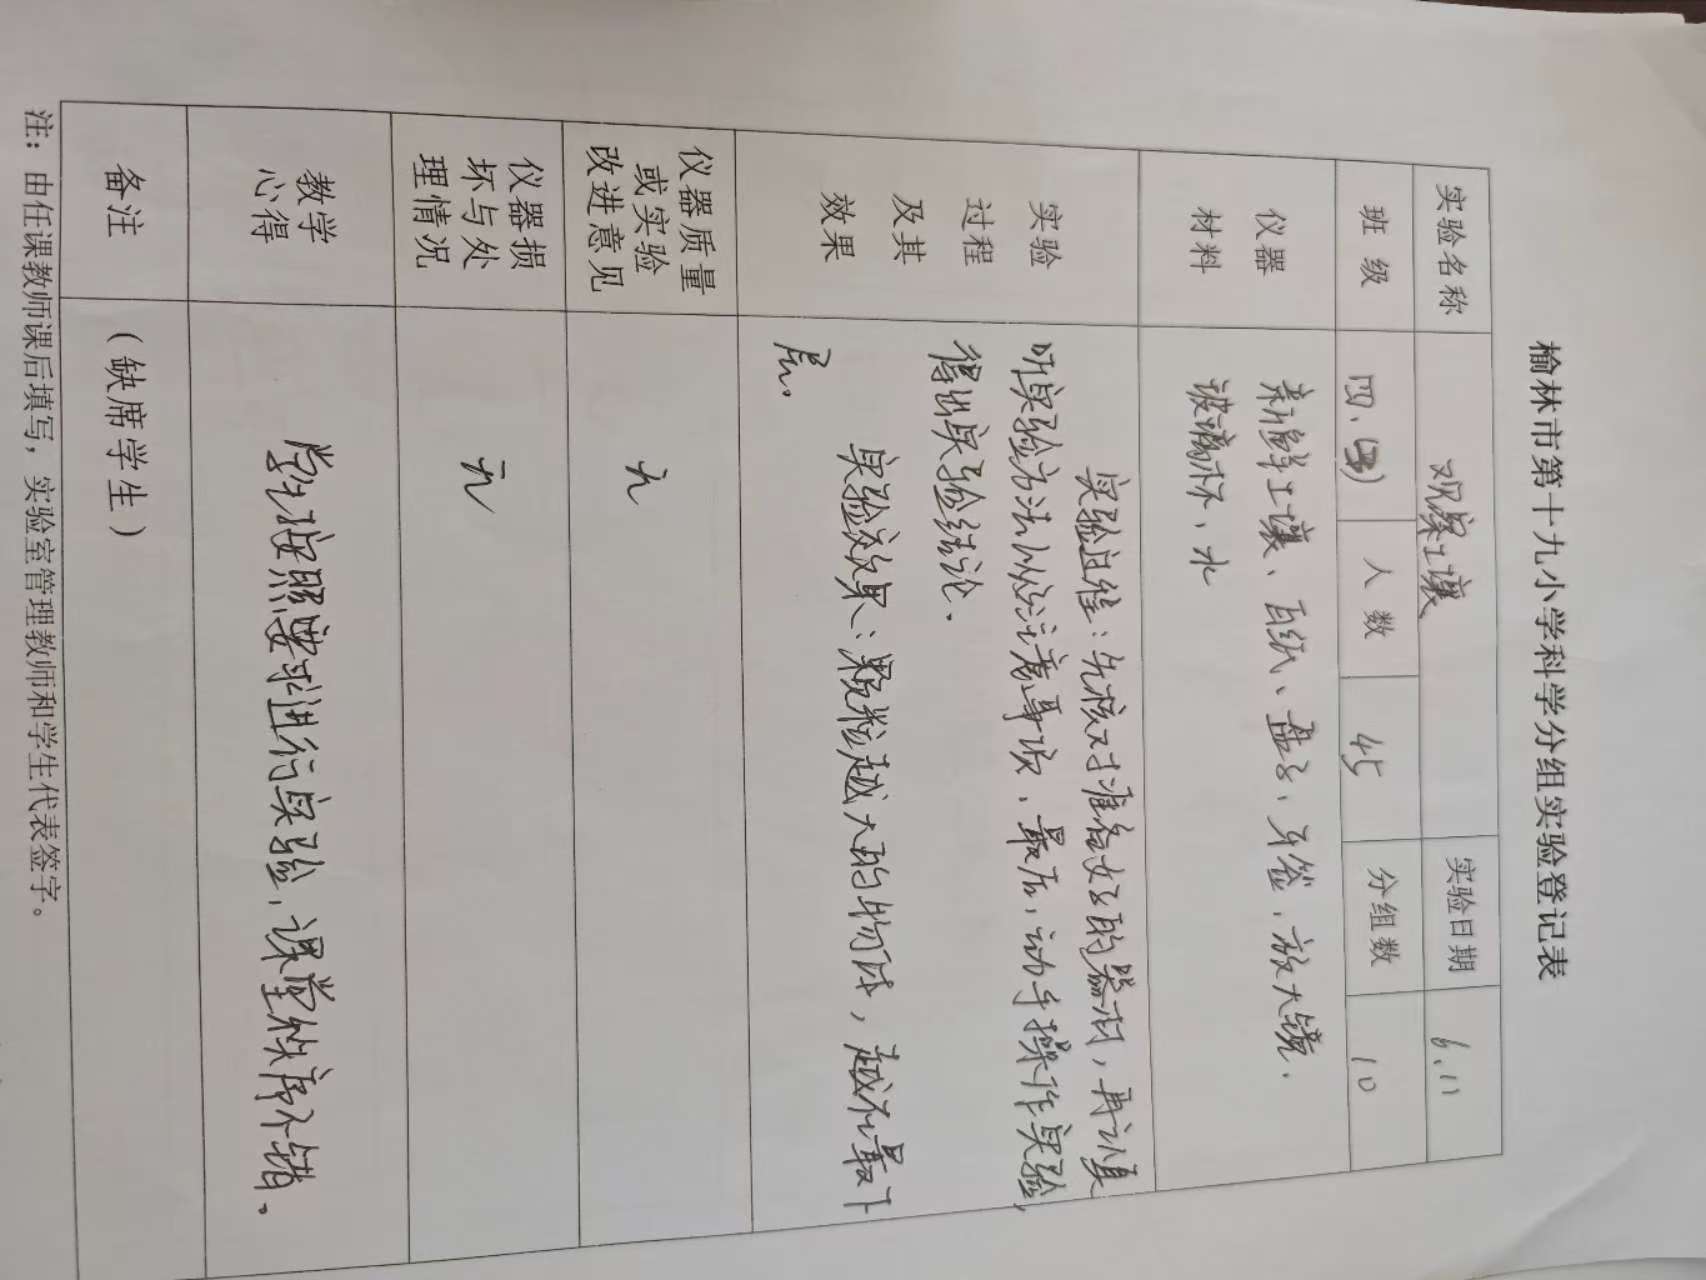 榆林市第十九小学科学分组实验登记表
实验名称 观察土壤 实验日期 6.11
班级 四.(3) 人数 45 分组数 10
仪器 新鲜土壤、白纸、盘子、牙签、放大镜.
材料 玻璃杯、水
实验 过程 及其 效果
实验过程：先核对准备好的器材，再认真
听实验方法以及注意事项.最后，动手操作实验,
得出实验结论.
实验效果：颗粒越大的物体，越在最下
层.
仪器质量
或实验
改进意见
无
仪器损
坏与处
理情况
无
教学
心得
学生按照要求进行实验，课堂秩序不错。
备注
（缺席学生）
注：由任课教师课后填写，实验室管理教师和学生代表签字。